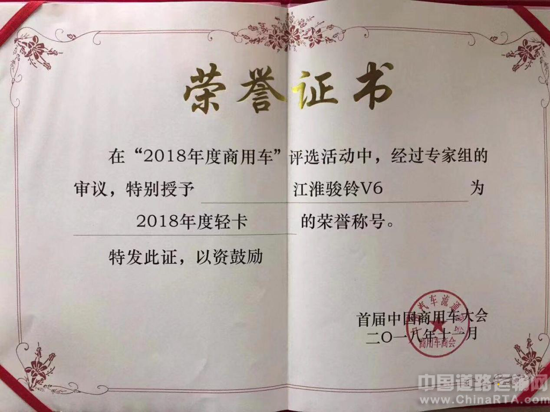 荣誉证书
在“2018年度商用车”评选活动中，经过专家组的
审议，特别授予 江淮骏铃V6 为
2018年度轻卡 的荣誉称号。
特发此证，以资鼓励
首届中国商用车大会
二〇一八年十一月
商用车商会
中国道路运输网
www.ChinaRTA.com